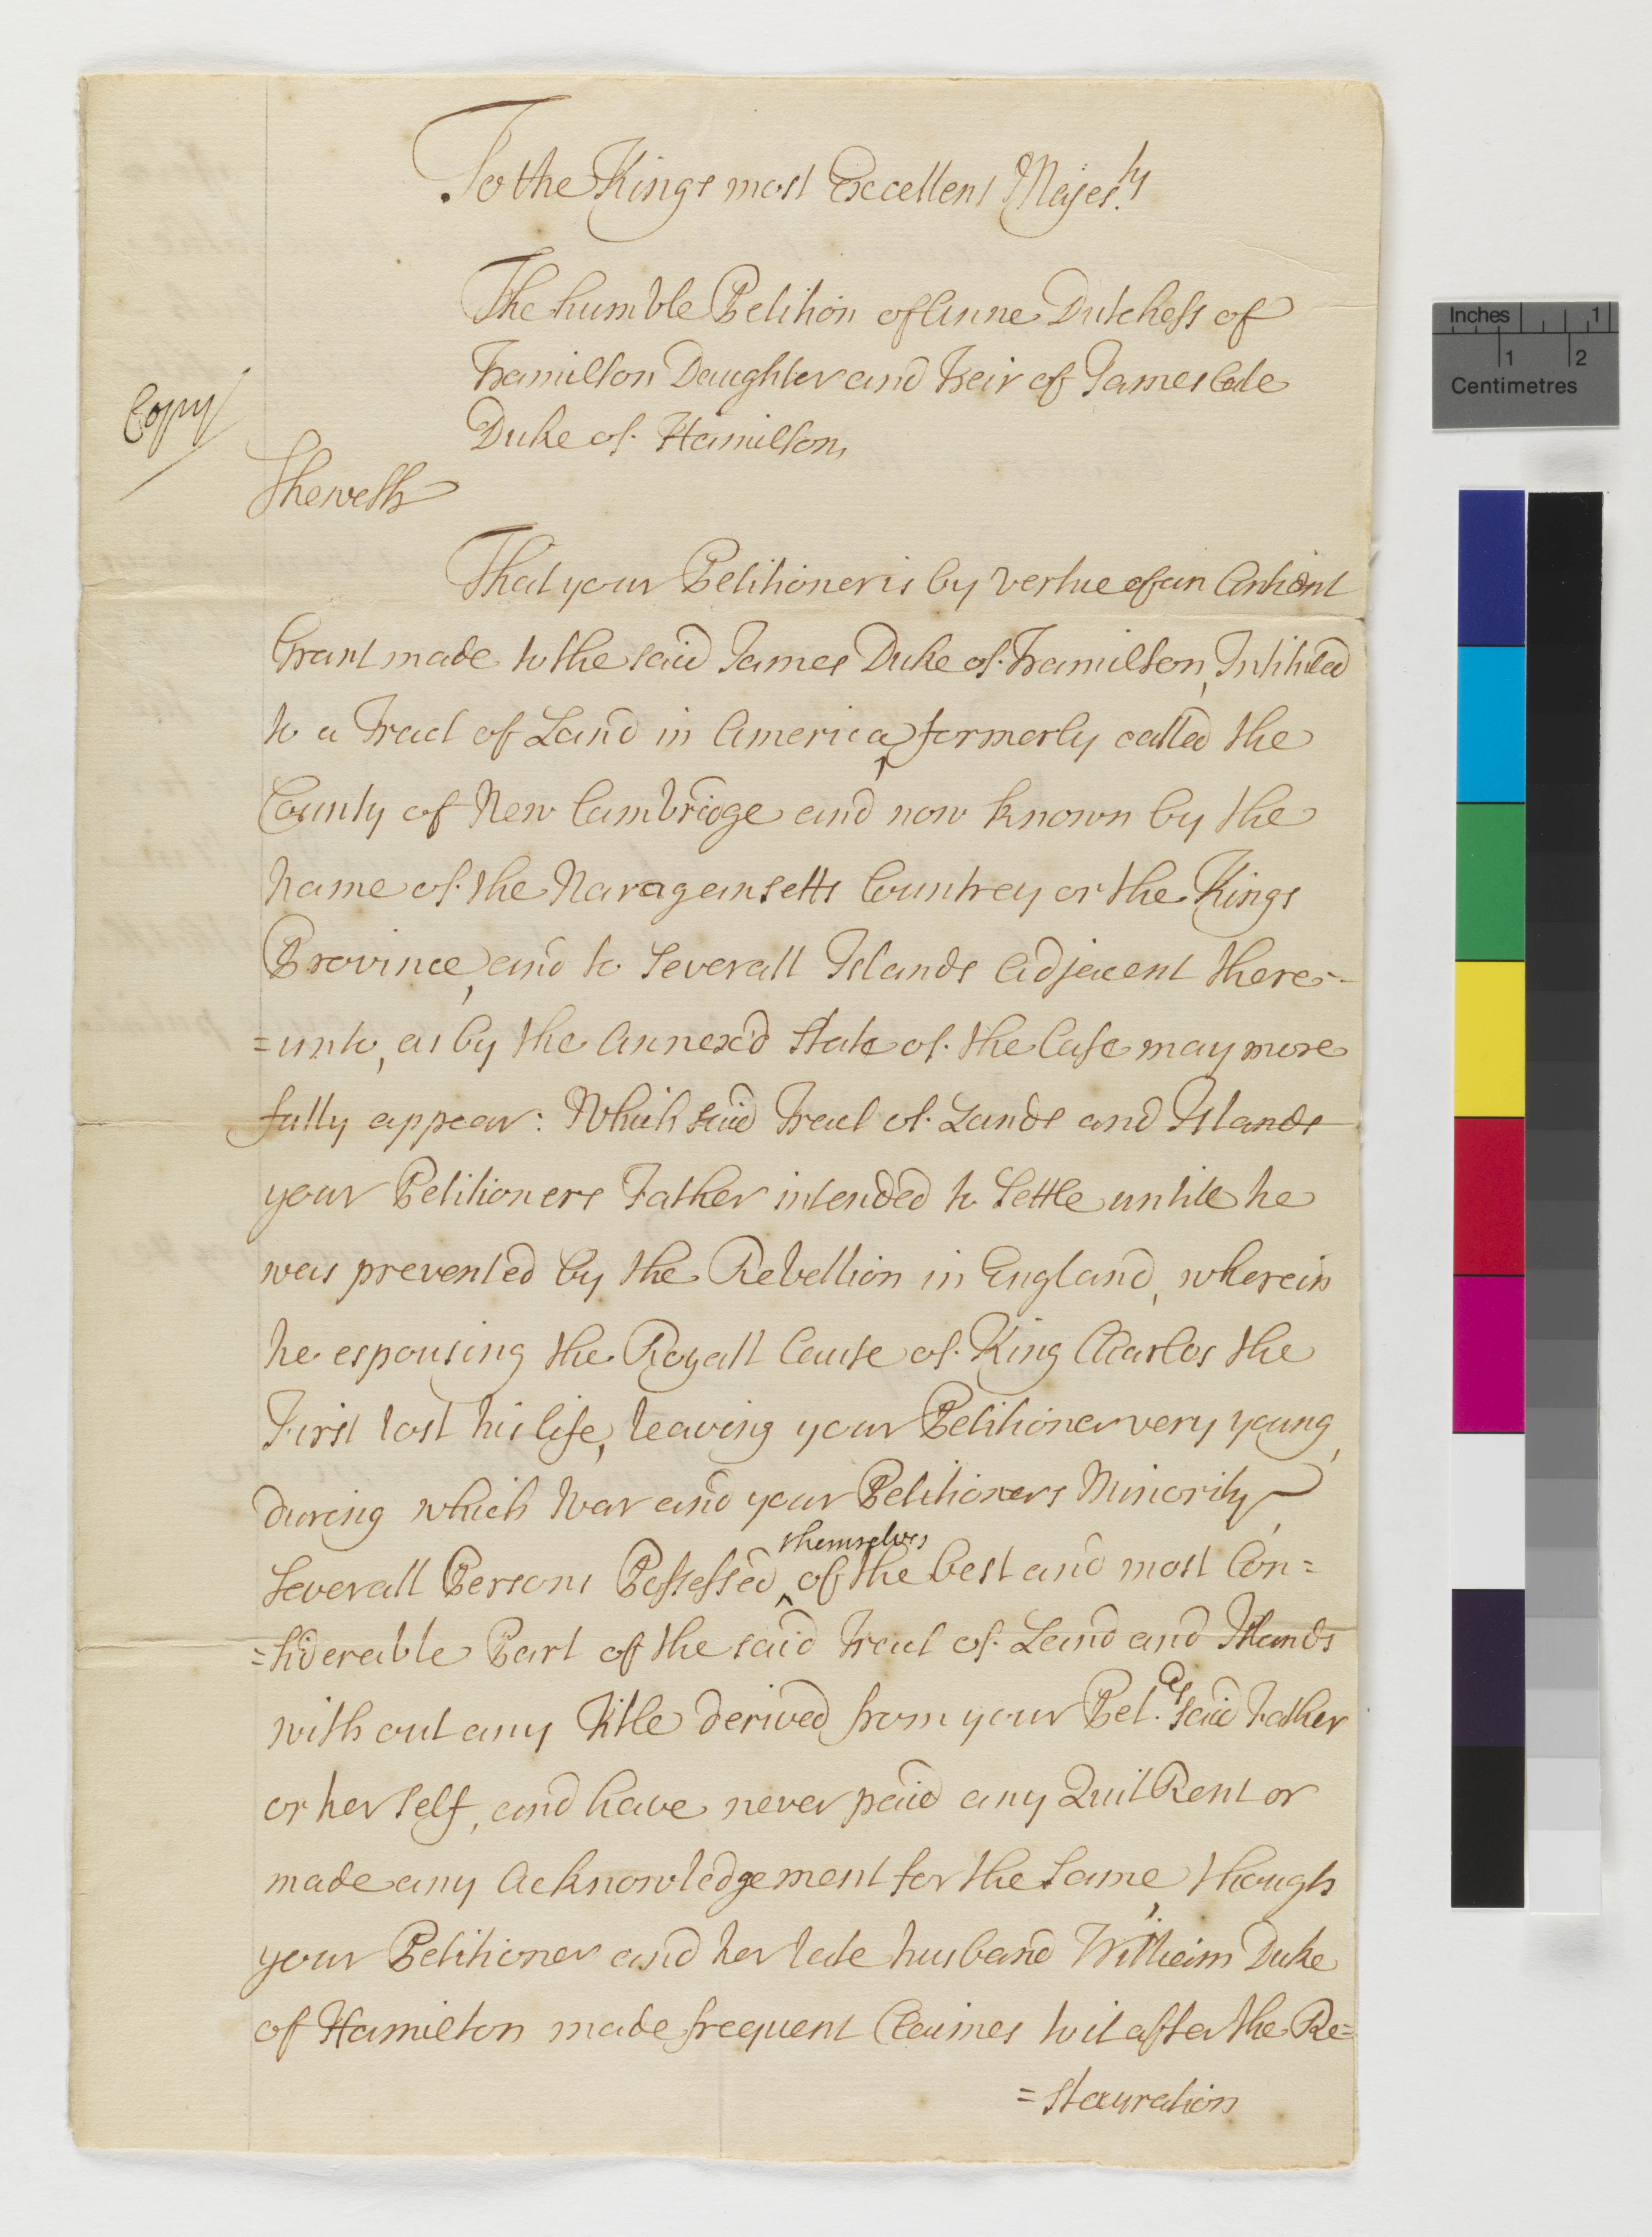 To the Kings most Excellent Majes.ty
The humble Petition of Anne Dutchess of
Hamilton Daughter and Heir of James late
Duke of Hamilton,
Copy
Sheweth
That your Petitioner is by vertue of an Antient
Grant made to the said James Duke of Hamilton, Intituled
to a Tract of Land in America, formerly called the
County of New Cambridge and now known by the
Name of the Naragansetts Countrey or the Kings
Province, and to Severall Islands Adjacent there-
=unto, as by the Annex'd State of the Case may more
fully appear: Which said Tract of Lands and Islands
your Petitioners Father intended to Settle untill he
was prevented by the Rebellion in England, wherein
he espousing the Royall Cause of King Charles the
First lost his life, leaving your Petitioner very young,
during which War and your Petitioners Minority,
themselves
Severall Persons Possessed ^ of the best and most Con=
=siderable Part of the said Tract of Land and Islands
without any Title derived from your Pet.rs said Father
or her self, and have never paid any Quit Rent or
made any Acknowledgement for the Same, though
your Petitioner and her late husband William Duke
of Hamilton made frequent Claimes to it after the Re=
=stauration
Inches 1
1 2
Centimetres